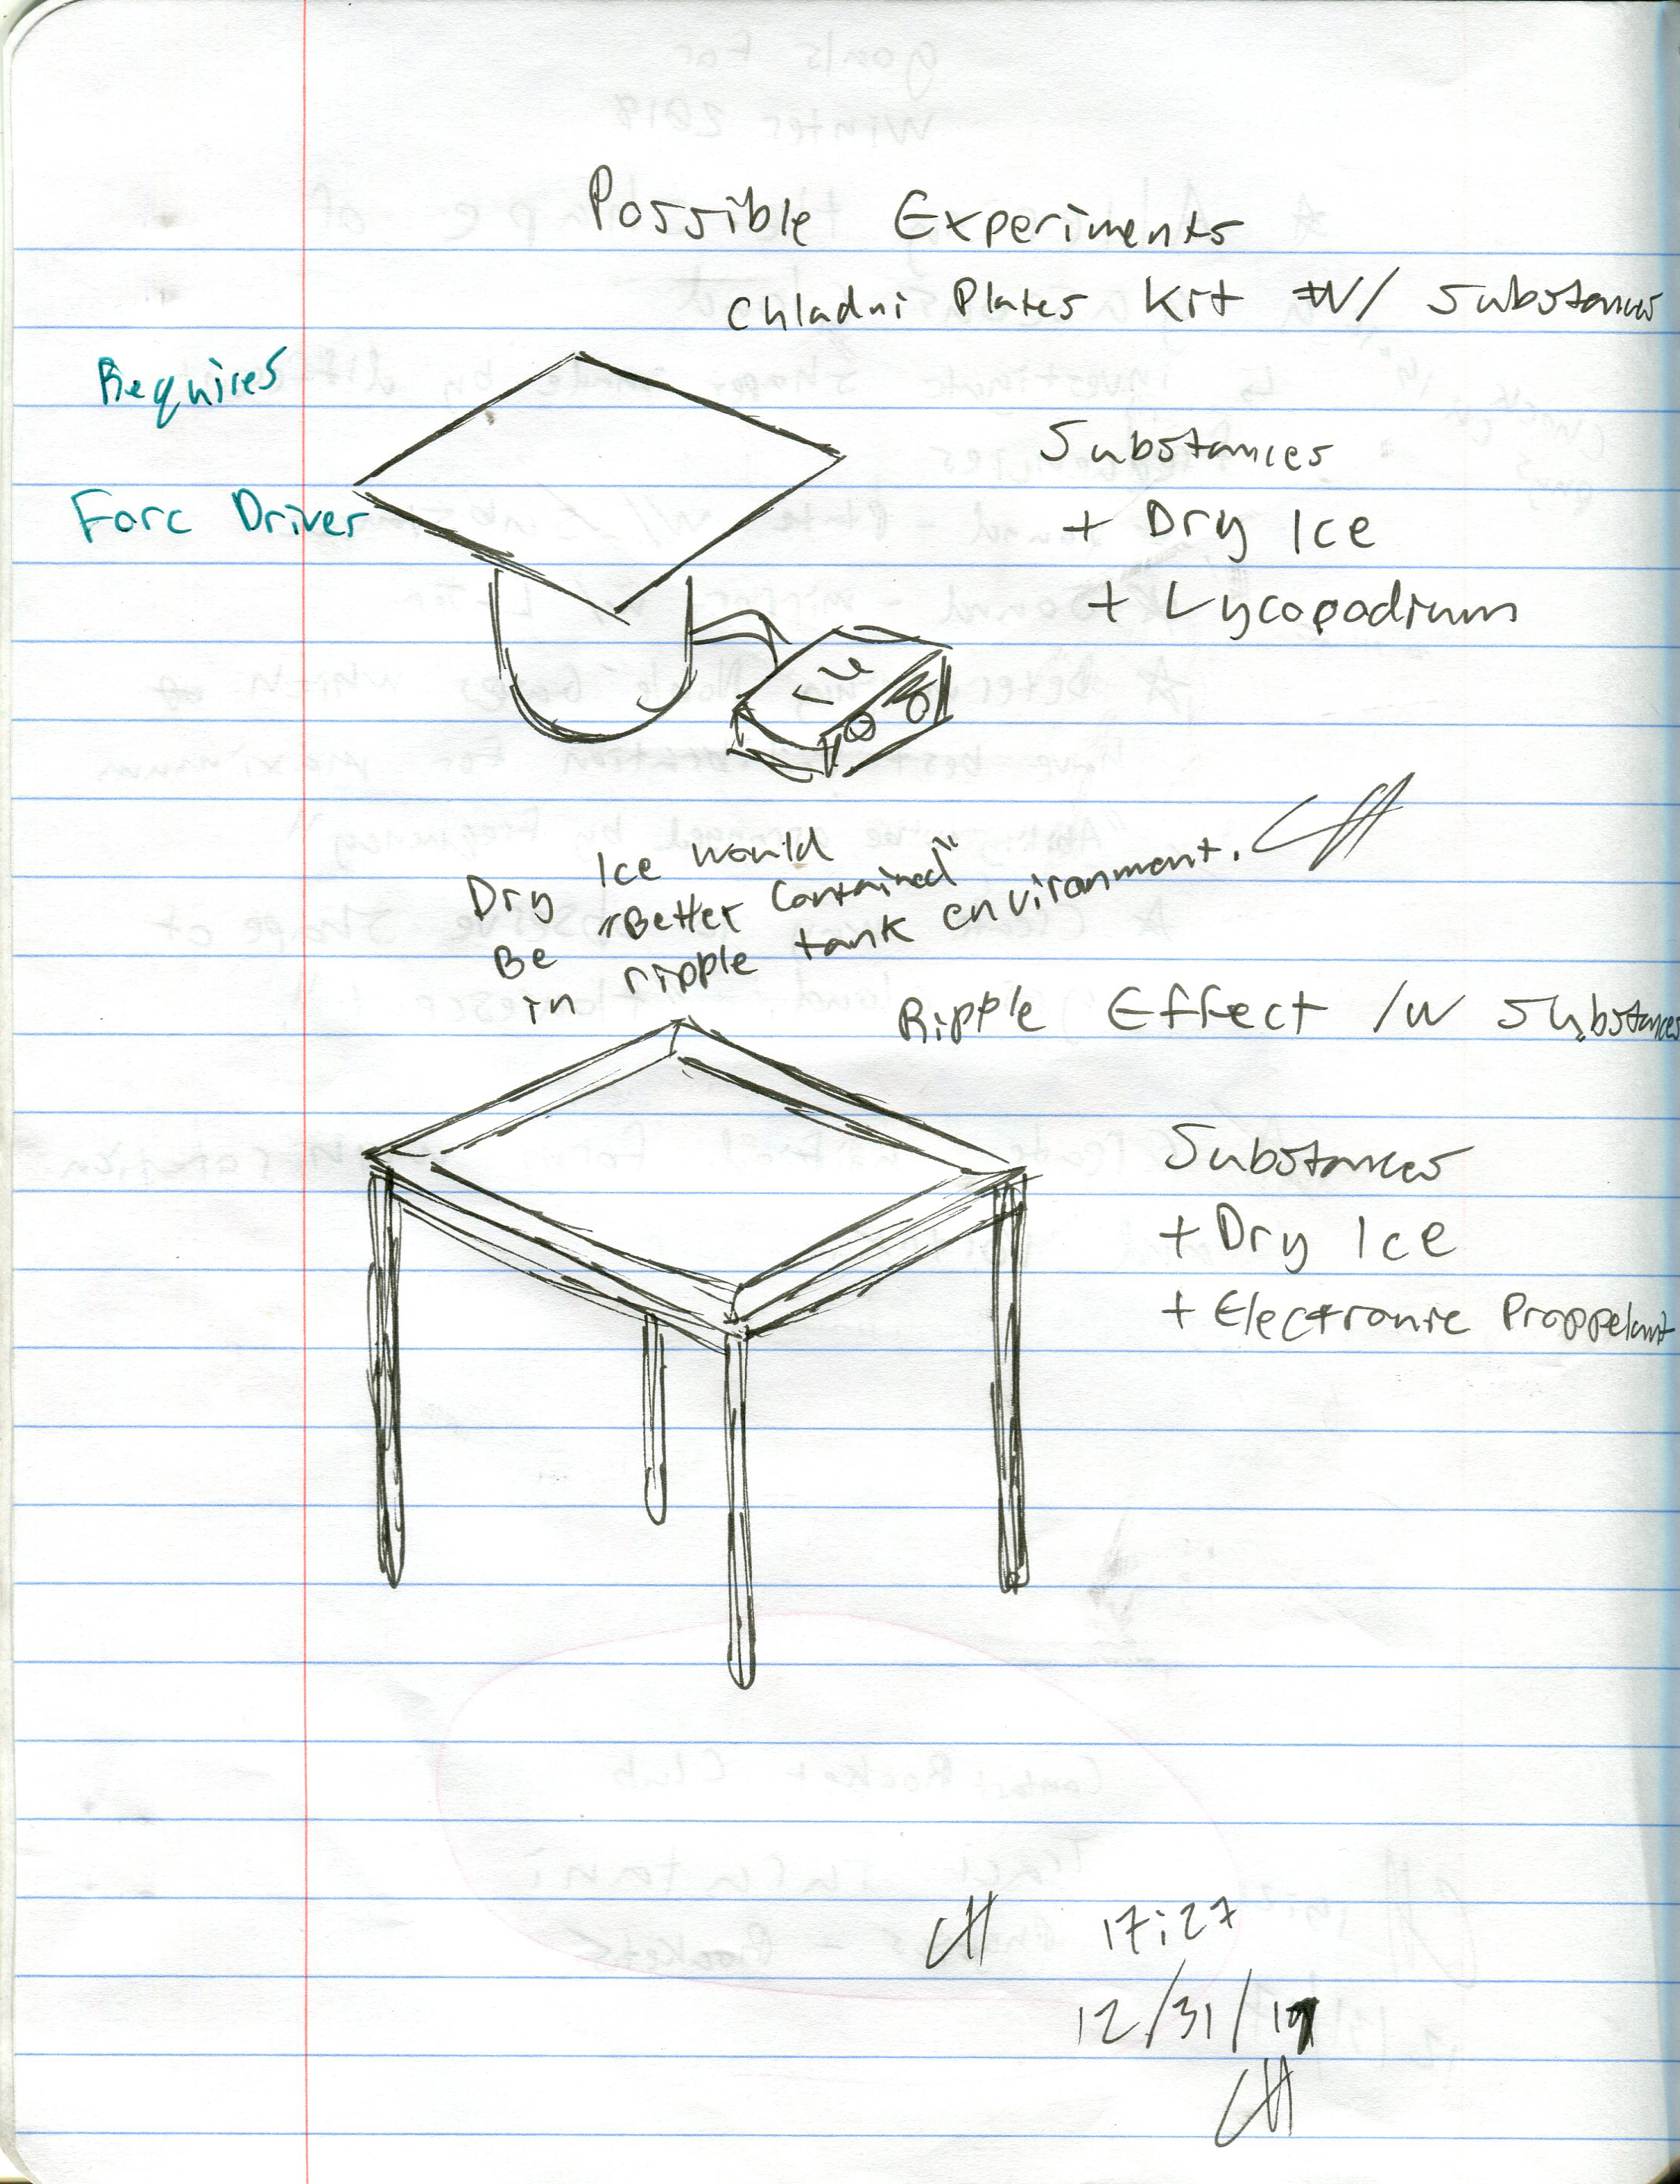 Possible Experiments
Chladni Plates Kit W/ Substances
Requires
Forc Driver
Substances
+ Dry Ice
+ Lycopodium
Dry Ice would
Be "Better Contained"
in ripple tank environment. CH
Ripple Effect /W Substances
Substances
+ Dry Ice
+ Electronic Proppelant
CH 17:27
12/31/19
CH